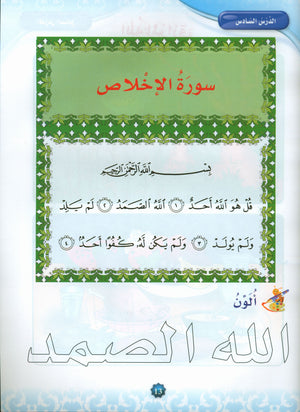 الدرس السادس
سورة الإخلاص
بسم الله الرحمن الرحيم
قُلْ هُوَ اللَّهُ أَحَدٌ ١ اللَّهُ الصَّمَدُ ٢ لَمْ يَلِدْ
وَلَمْ يُولَدْ ٣ وَلَمْ يَكُن لَّهُ كُفُوًا أَحَدٌ ٤
أُلَوِّنُ
الله الصمد
١٣